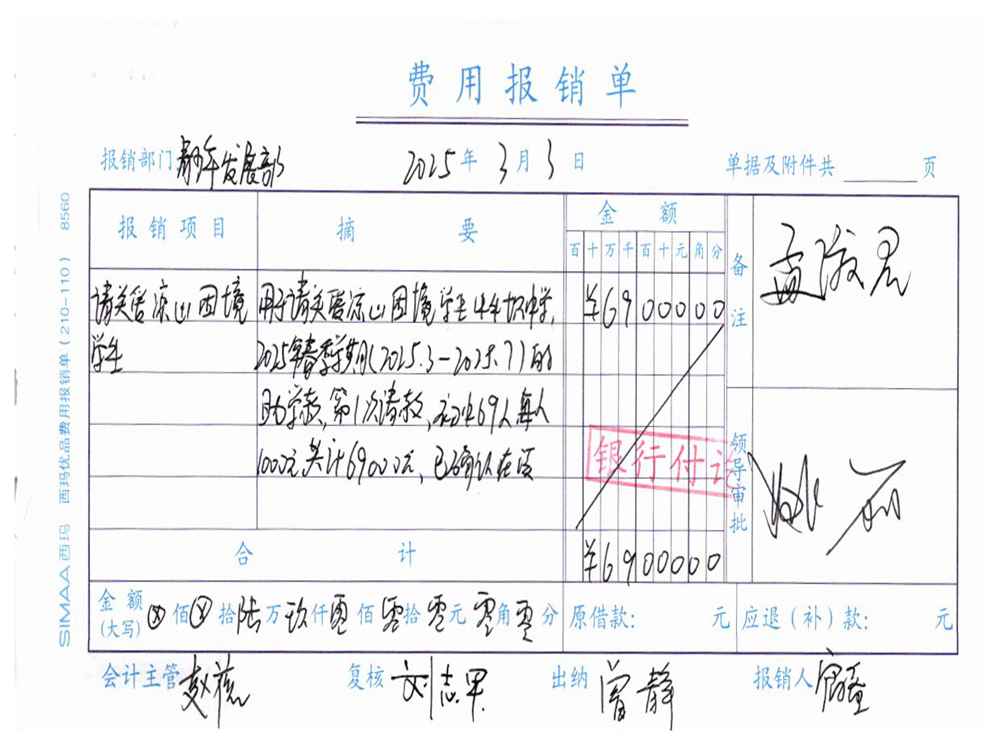 费用报销单
报销部门 青年发展部 2025年3月3日 单据及附件共 页
报销项目 摘要 金额
百 十 万 千 百 十 元 角 分
备注
请关爱凉山困境 用于请关爱凉山困境学生 中学, ¥6900000
学生 2025年春季学期(2025.3-2025.7)的
助学款,第1次请款,初中69人每人
1000元,共计69000元,已确认在读
银行付讫
领导审批
合计 ¥6900000
金额(大写) ⊗佰⊗拾陆万玖仟零佰零拾零元零角零分 原借款: 元 应退(补)款: 元
会计主管 赵 复核 刘志军 出纳 曾静 报销人
SIMAA西玛 西玛优品费用报销单(210-110) 8560